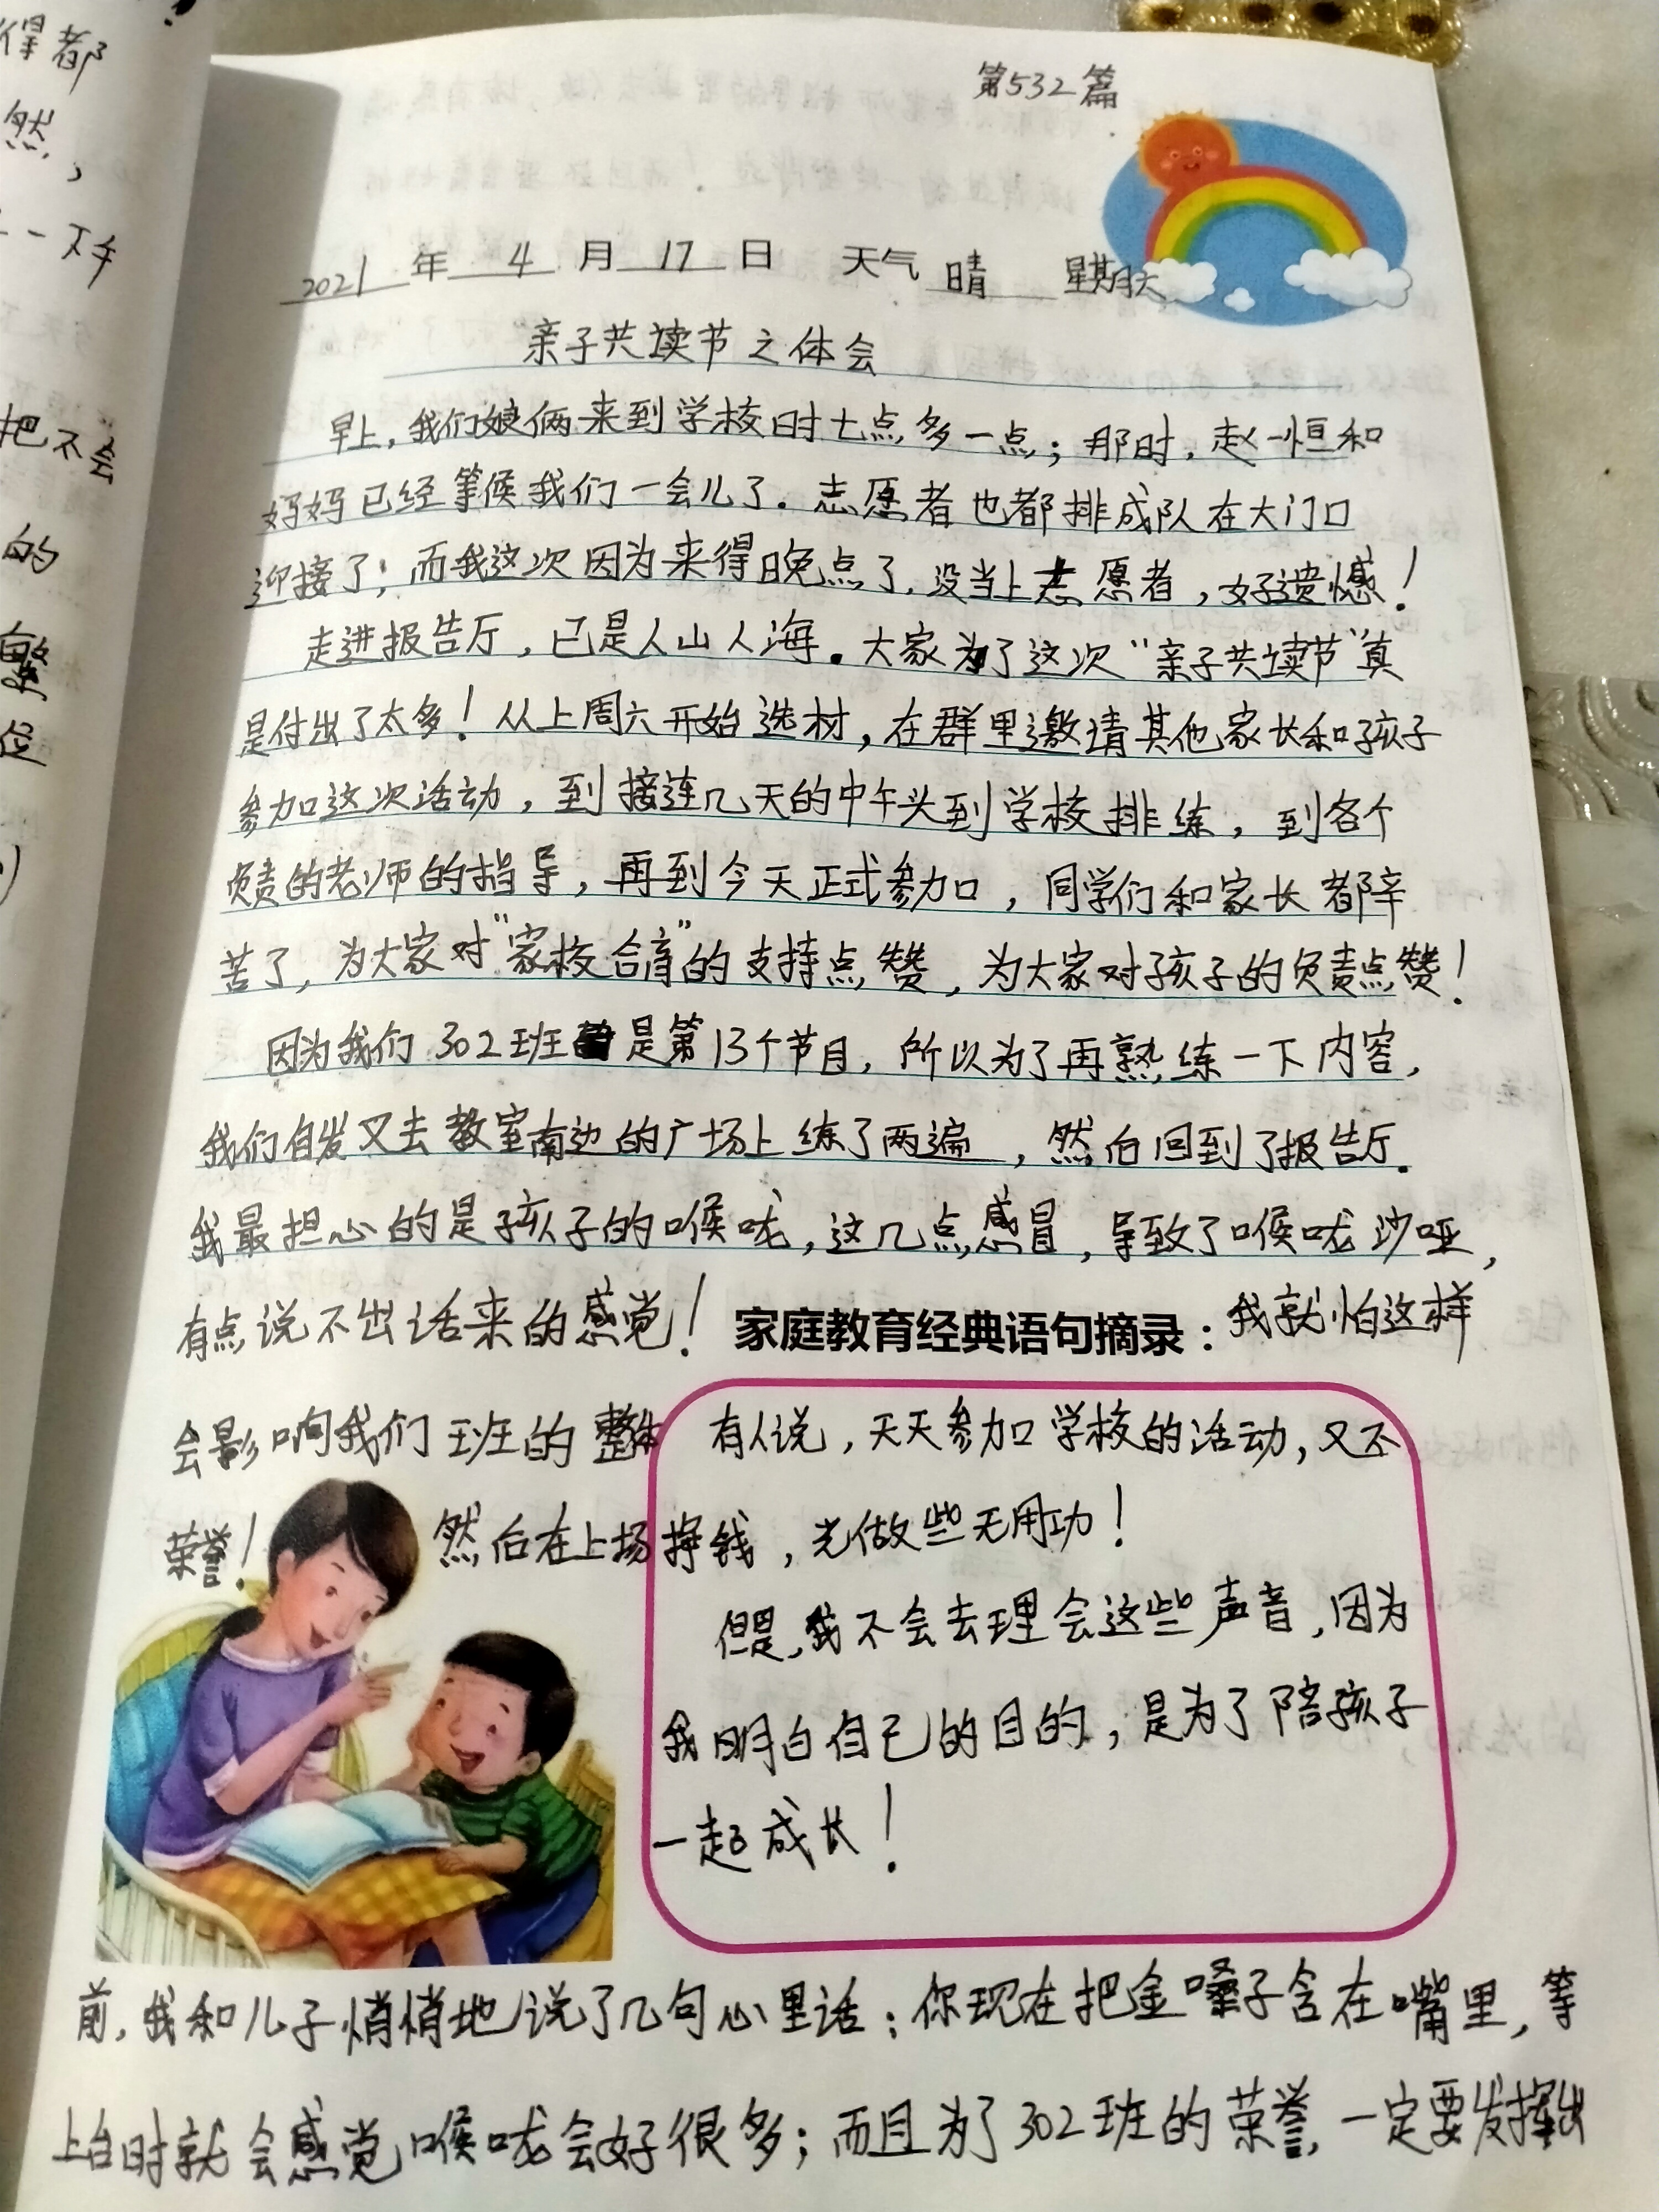 得都
然，
一下午
把不会
的
第532篇
2021年4月17日 天气 晴 星期天
亲子共读节之体会
早上，我们娘俩来到学校时七点多一点；那时，赵一恒和
妈妈已经等候我们一会儿了。志愿者也都排成队在大门口
迎接了；而我这次因为来得晚点了，没当上志愿者，好遗憾！
走进报告厅，已是人山人海。大家为了这次“亲子共读节”真
是付出了太多！从上周六开始选材，在群里邀请其他家长和孩子
参加这次活动，到接连几天的中午头到学校排练，到各个
负责的老师的指导，再到今天正式参加，同学们和家长都辛
苦了，为大家对“家校合育”的支持点赞，为大家对孩子的负责点赞！
因为我们302班是第13个节目，所以为了再熟练一下内容，
我们自发又去教室南边的广场上练了两遍，然后回到了报告厅。
我最担心的是孩子的喉咙，这几点感冒，导致了喉咙沙哑，
有点说不出话来的感觉！家庭教育经典语句摘录：我就怕这样
会影响我们班的整体
荣誉！然后在上场
有人说，天天参加学校的活动，又不
挣钱，光做些无用功！
但是，我不会去理会这些声音，因为
我明白自己的目的，是为了陪孩子
一起成长！
前，我和儿子悄悄地说了几句心里话：你现在把金嗓子含在嘴里，等
上台时就会感觉喉咙会好很多；而且为了302班的荣誉，一定要发挥出